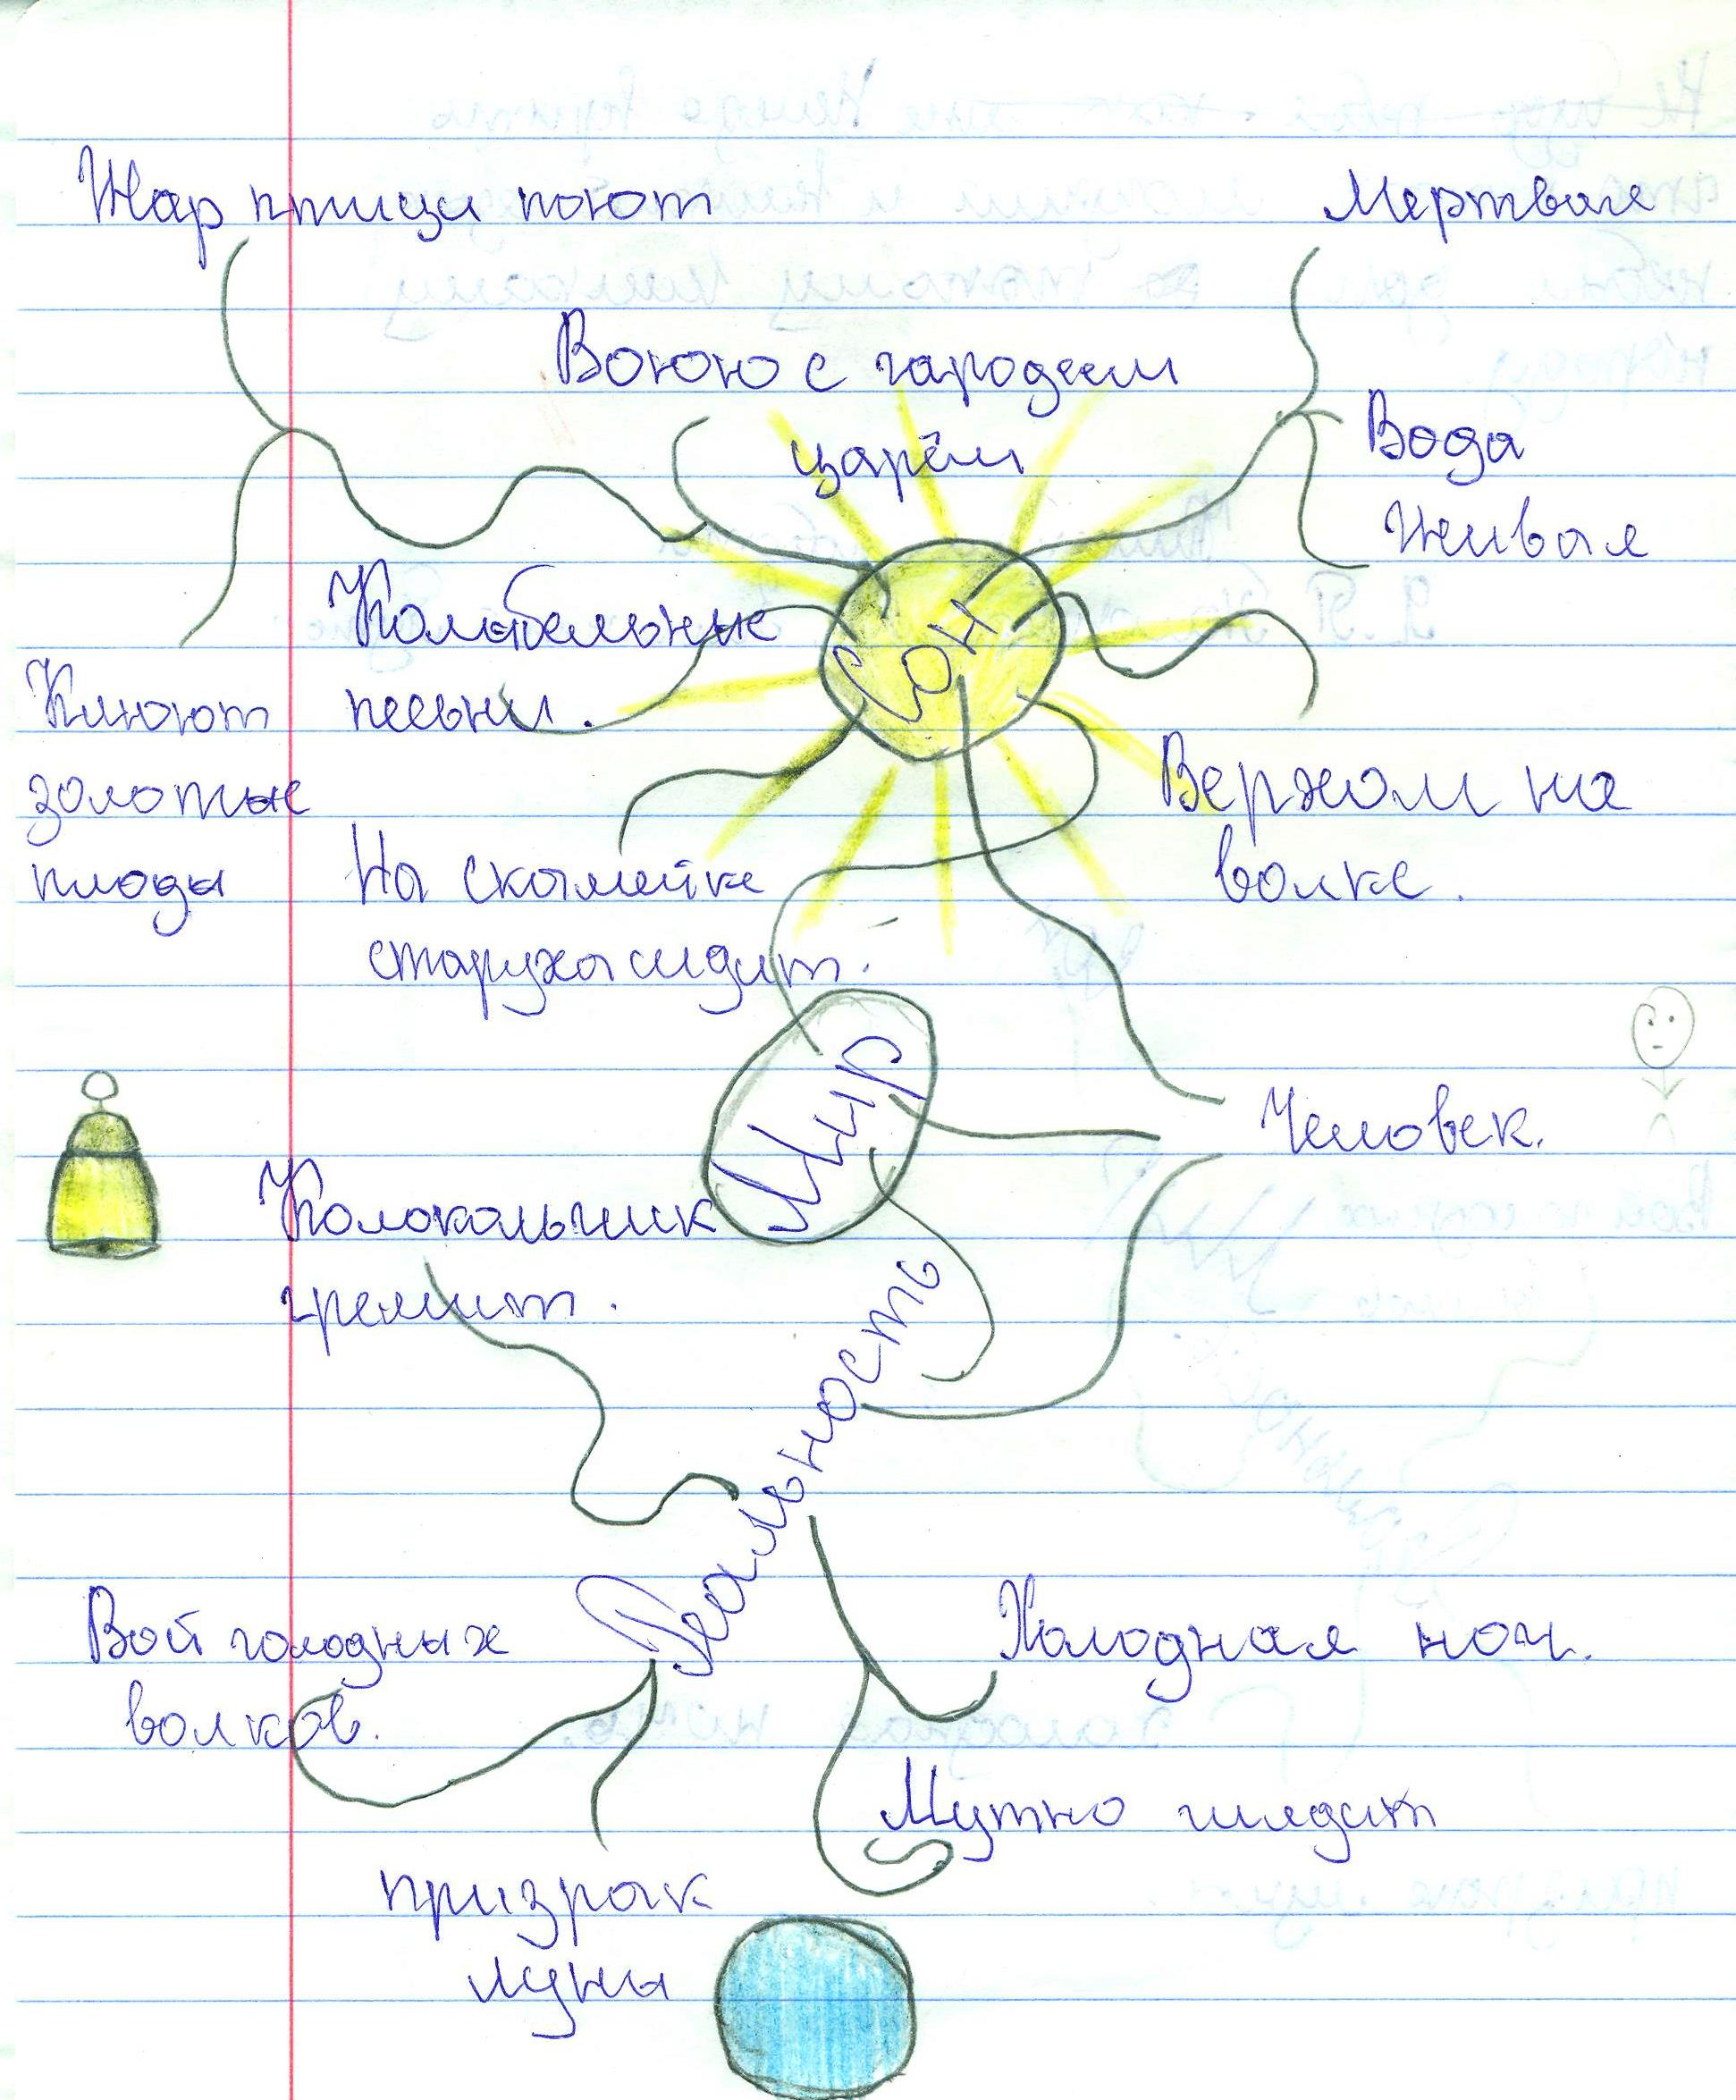 Жар птицы поют
Мертвая
Воюю с чародеем
царём
Вода
Живая
Колыбельные
песьни.
Сон
Клюют
золотые
плоды
Верхом на
волке.
На скамейке
старуха сидит.
Мир
Человек.
Колокольчик
гремит.
Реальность
Вой голодных
волков.
Холодная ноч.
Мутно глядит
призрак
луны